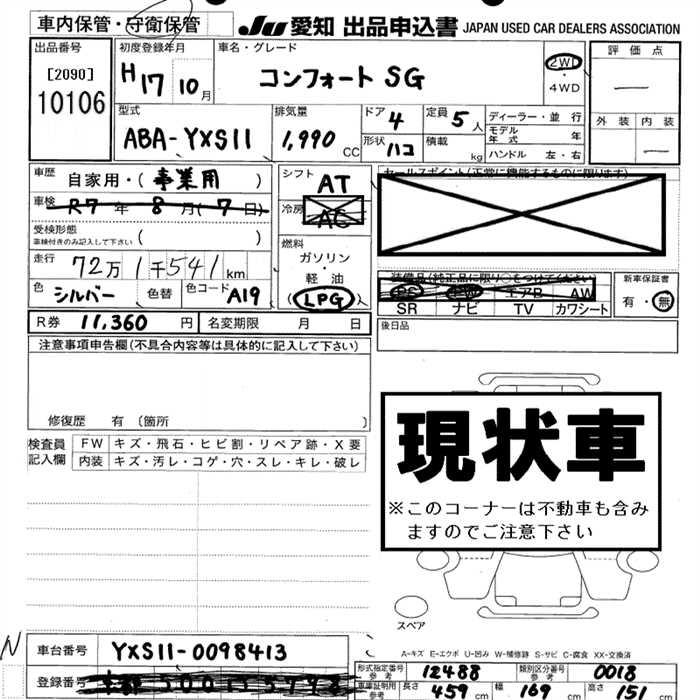 車内保管・守衛保管
JU 愛知 出品申込書 JAPAN USED CAR DEALERS ASSOCIATION
出品番号
[2090]
10106
初度登録年月
H17 10月
車名・グレード
コンフォート SG
2WD
・
4WD
評価点
—
外装 内装
—
型式
ABA-YXS11
排気量
1,990 CC
ドア 4
定員 5人
形状 ハコ
積載 kg
ディーラー・並行
モデル年式 年
ハンドル 左・右
車歴
自家用・(事業用)
車検
R7年 8月(7日)
受検形態
車検付きのみ記入して下さい ( )
走行
72万1千541km
色 シルバー
色替
色コード A19
シフト
AT
冷房
AC
燃料
ガソリン・
軽油
(LPG)
セールスポイント(正常に機能するものに限ります)
装備品(純正品に限り○をつけてください)
エアB AW
SR ナビ TV カワシート
新車保証書
有・無
R券 11,360 円
名変期限 月 日
後日品
注意事項申告欄(不具合内容等は具体的に記入して下さい)
修復歴 有〔箇所 〕
検査員
記入欄
FW キズ・飛石・ヒビ割・リペア跡・X要
内装 キズ・汚レ・コゲ・穴・スレ・キレ・破レ
現状車
※このコーナーは不動車も含み
ますのでご注意下さい
スペア
A-キズ E-エクボ U-凹み W-補修跡 S-サビ C-腐食 XX-交換済
N
車台番号
YXS11-0098413
登録番号
形式指定番号
参考
12488
類別区分番号
参考
0018
車庫証明用
参考
長さ 459 cm
幅 169 cm
高さ 151 cm